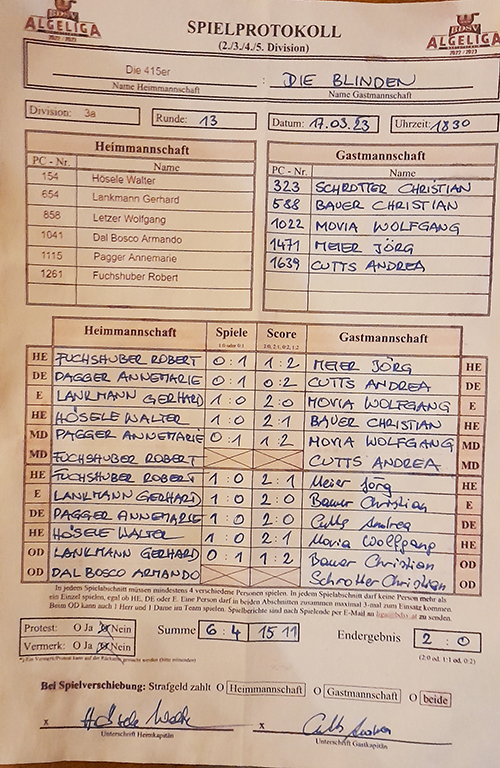 BDSV
ALGELIGA
2022 / 2023
SPIELPROTOKOLL
(2./3./4./5. Division)
BDSV
ALGELIGA
2022 / 2023
Die 415er : DIE BLINDEN
Name Heimmannschaft Name Gastmannschaft
Division: 3a Runde: 13 Datum: 17.03.23 Uhrzeit: 1830
Heimmannschaft
PC - Nr. Name
154 Hösele Walter
654 Lankmann Gerhard
858 Letzer Wolfgang
1041 Dal Bosco Armando
1115 Pagger Annemarie
1261 Fuchshuber Robert
Gastmannschaft
PC - Nr. Name
323 SCHROTTER CHRISTIAN
588 BAUER CHRISTIAN
1022 MOVIA WOLFGANG
1471 MEIER JÖRG
1639 CUTTS ANDREA
Heimmannschaft Spiele Score Gastmannschaft
1:0 oder 0:1 2:0, 2:1, 0:2, 1:2
HE FUCHSHUBER ROBERT 0:1 1:2 MEIER JÖRG HE
DE PAGGER ANNEMARIE 0:1 0:2 CUTTS ANDREA DE
E LANKMANN GERHARD 1:0 2:0 MOVIA WOLFGANG E
HE HÖSELE WALTER 1:0 2:1 BAUER CHRISTIAN HE
MD PAGGER ANNEMARIE 0:1 1:2 MOVIA WOLFGANG MD
MD FUCHSHUBER ROBERT CUTTS ANDREA MD
HE FUCHSHUBER ROBERT 1:0 2:1 Meier Jörg HE
E LANKMANN GERHARD 1:0 2:0 Bauer Christian E
DE PAGGER ANNEMARIE 1:0 2:0 Cutts Andrea DE
HE HÖSELE WALTER 1:0 2:1 Movia Wolfgang HE
OD LANKMANN GERHARD 0:1 1:2 Bauer Christian OD
OD DAL BOSCO ARMANDO Schrotter Christian OD
In jedem Spielabschnitt müssen mindestens 4 verschiedene Personen spielen. In jedem Spielabschnitt darf keine Person mehr als
ein Einzel spielen, egal ob HE, DE oder E. Eine Person darf in beiden Abschnitten zusammen maximal 3-mal zum Einsatz kommen.
Beim OD kann auch 1 Herr und 1 Dame im Team spielen. Spielberichte sind nach Spielende per E-Mail an liga@bdsv.at zu senden
Protest: O Ja O Nein
Vermerk: O Ja O Nein
Summe 6:4 15 11 Endergebnis 2 : 0
(2:0 od. 1:1 od. 0:2)
Bei Spielverschiebung: Strafgeld zahlt O Heimmannschaft O Gastmannschaft O beide
x Hösele Walter x Cutts Andrea
Unterschrift Heimkapitän Unterschrift Gastkapitän